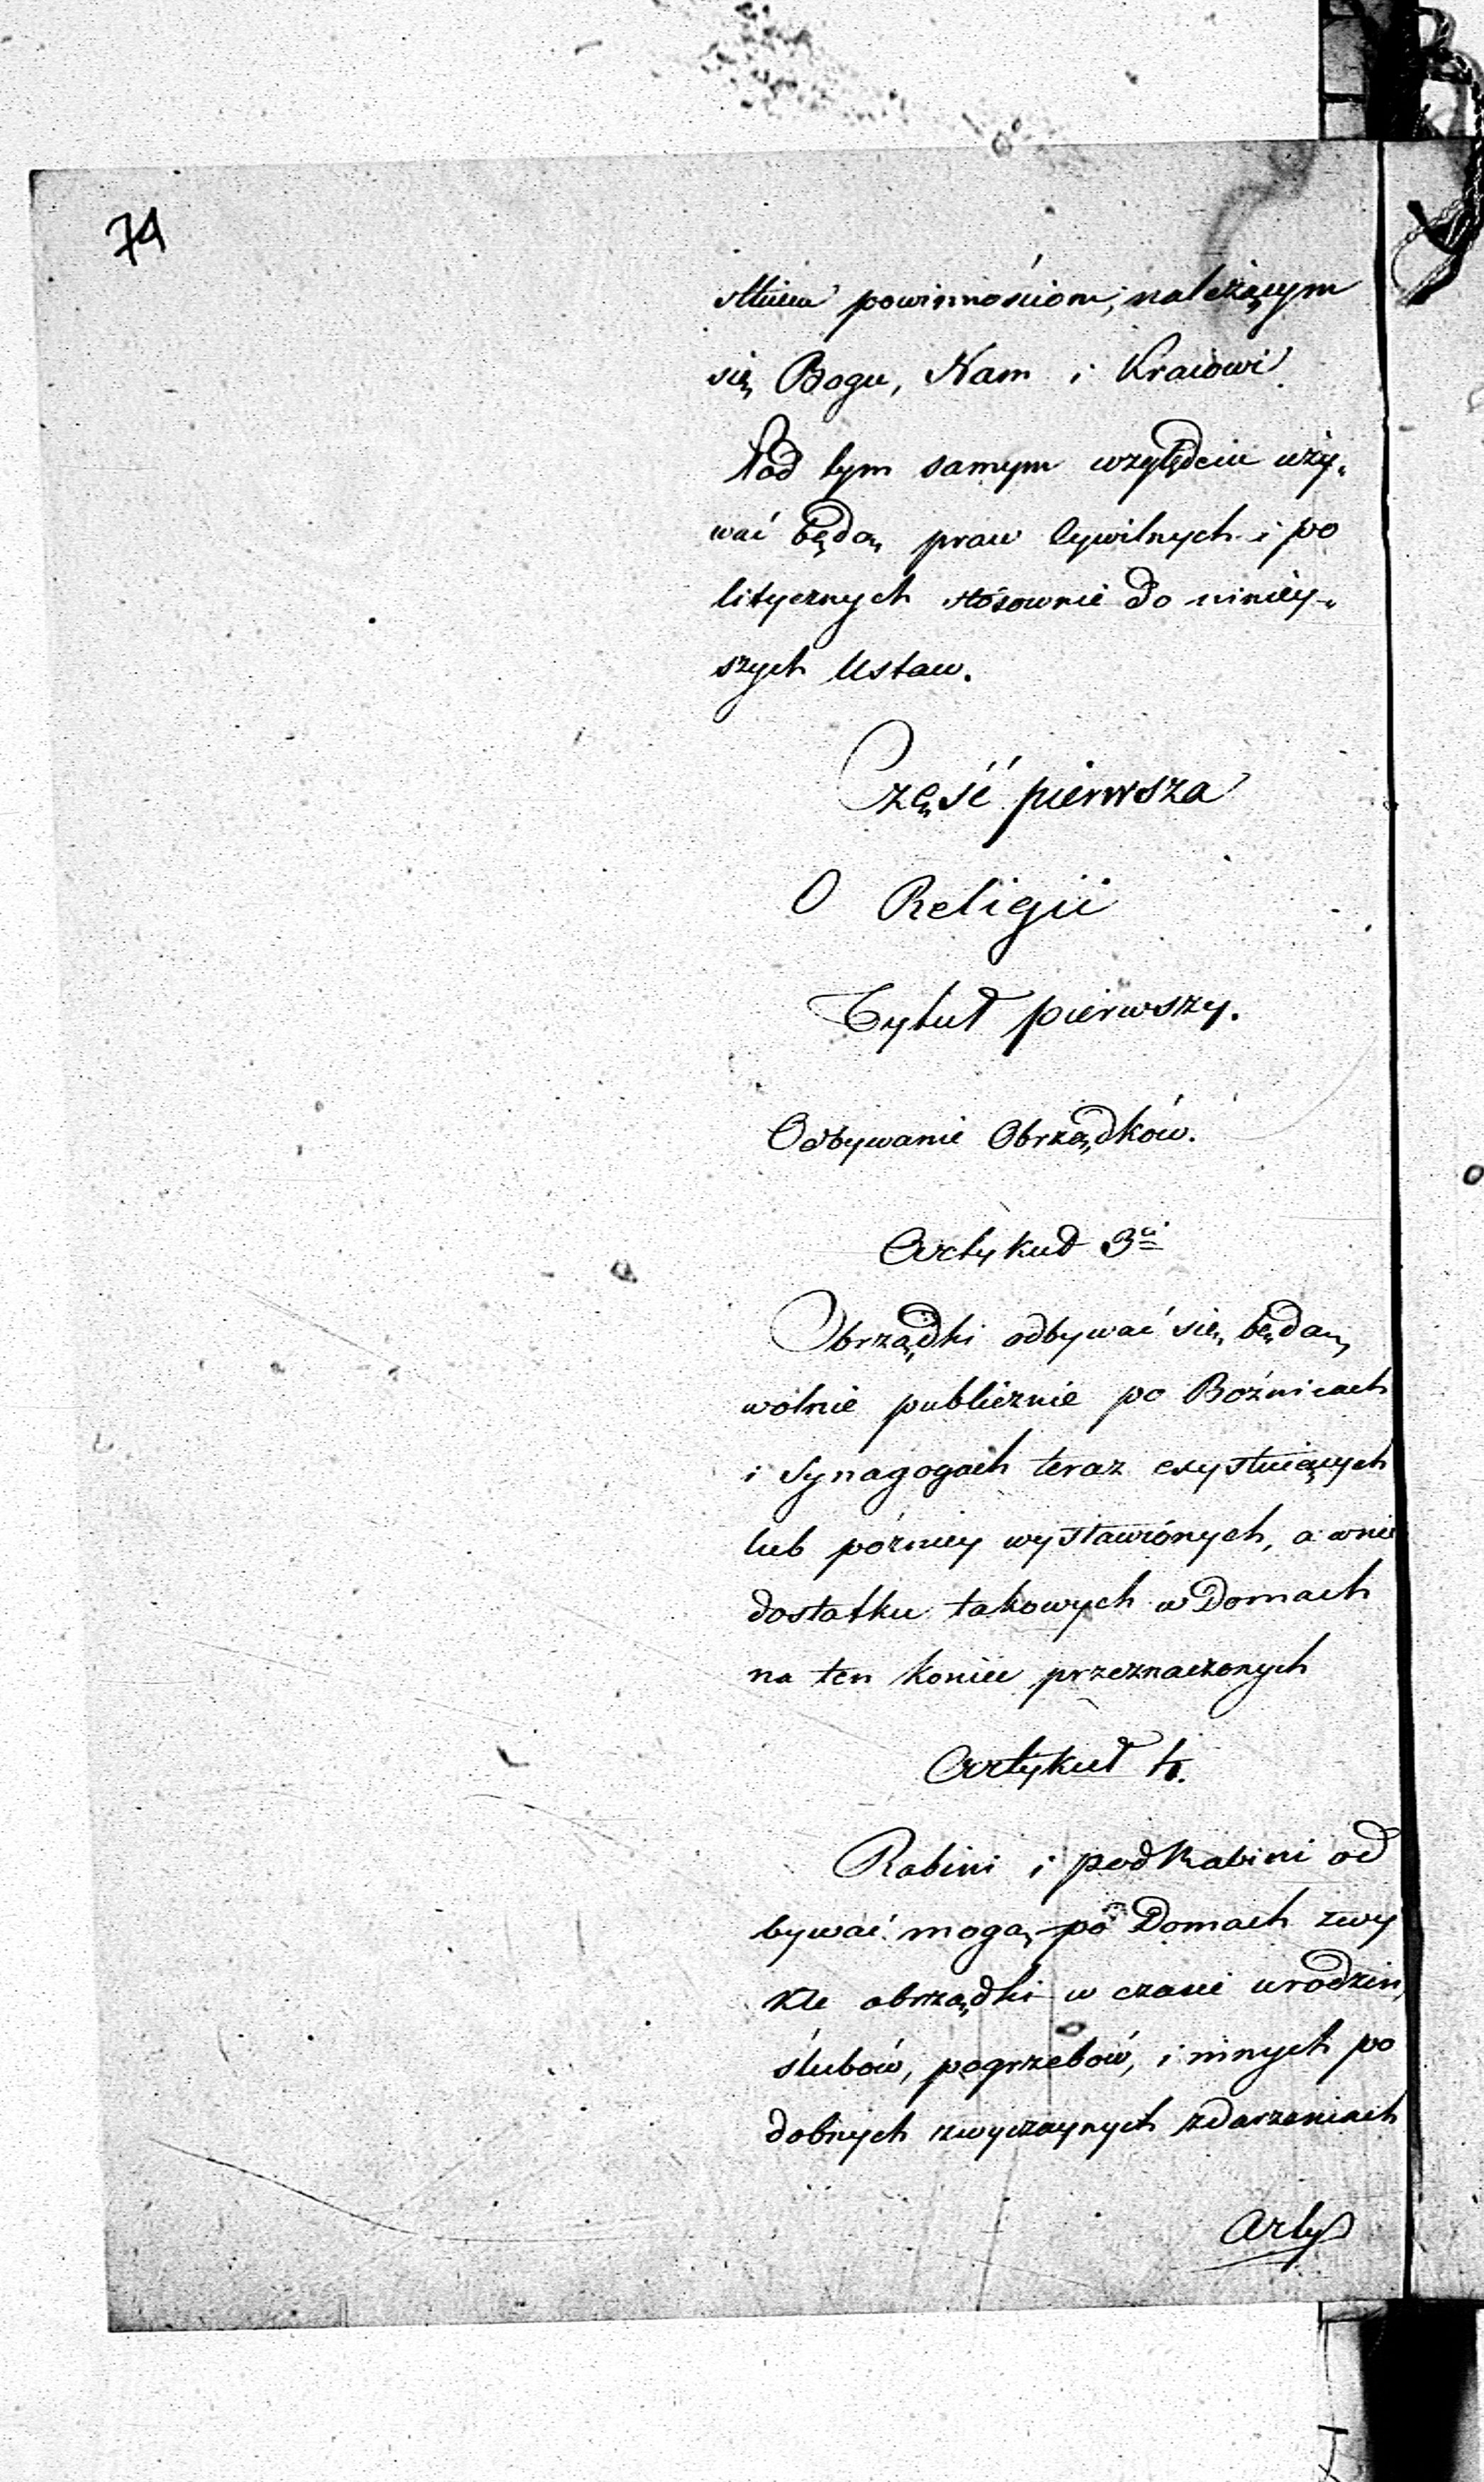 74
powinnościom, należącym
się Bogu, Nam i Kraiowi
Pod tym samym względem uży-
wać będą praw Cywilnych i po
litycznych stósownie do niniey-
szych Ustaw.
Część pierwsza
O Religii
Tytuł pierwszy.
Odbywanie Obrządków.
Artykuł 3ci
Obrządki odbywać się będą
wolnie publicznie po Boźnicach
i Synagogach teraz exystuiących
lub pózniey wystawionych, a w nie
dostatku takowych w Domach
na ten koniec przeznaczonych
Artykuł 4.
Rabini i podRabini od
bywać mogą po Domach zwy
kłe obrządki w czasie urodzin,
ślubów, pogrzebów, i innych po
dobnych zwyczaynych zdarzeniach
Arty